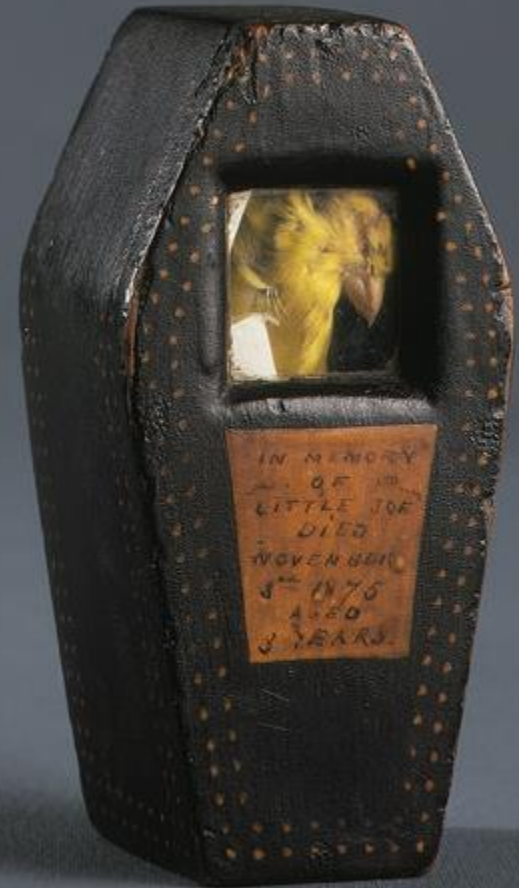 IN MEMORY
OF
LITTLE JOE
DIED
NOVEMBER
3rd 1875
AGED
3 YEARS.